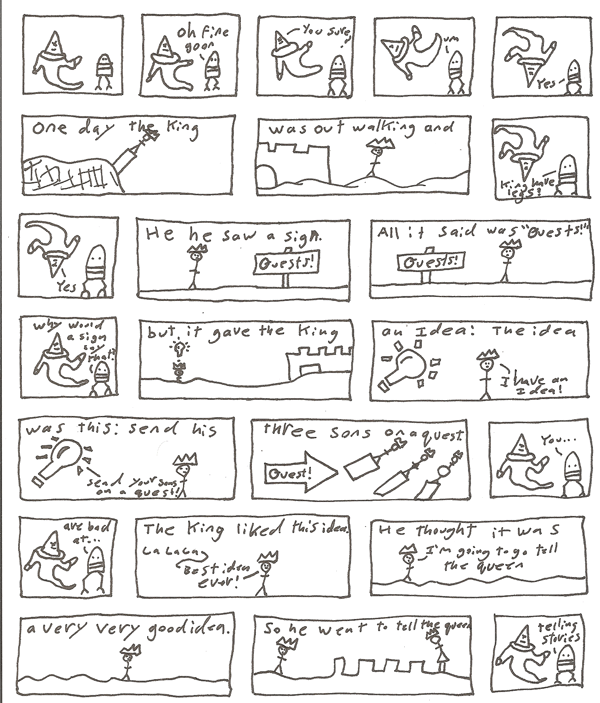 Oh fine
goon
You sure?
um
Yes
One day the King
was out walking and
King have
legs?
Yes
He he saw a sign.
Quests!
All it said was "Quests!"
Quests!
Why would
a sign
say
that?
but it gave the King
an Idea: The idea
I have an
Idea!
was this: send his
send your sons
on a quest!
three sons on a quest
Quest!
You...
are bad
at...
The King liked this idea.
La La La
Best idea
ever!
He thought it was
I'm going to go tell
the queen
a very very good idea.
So he went to tell the queen
telling
stories